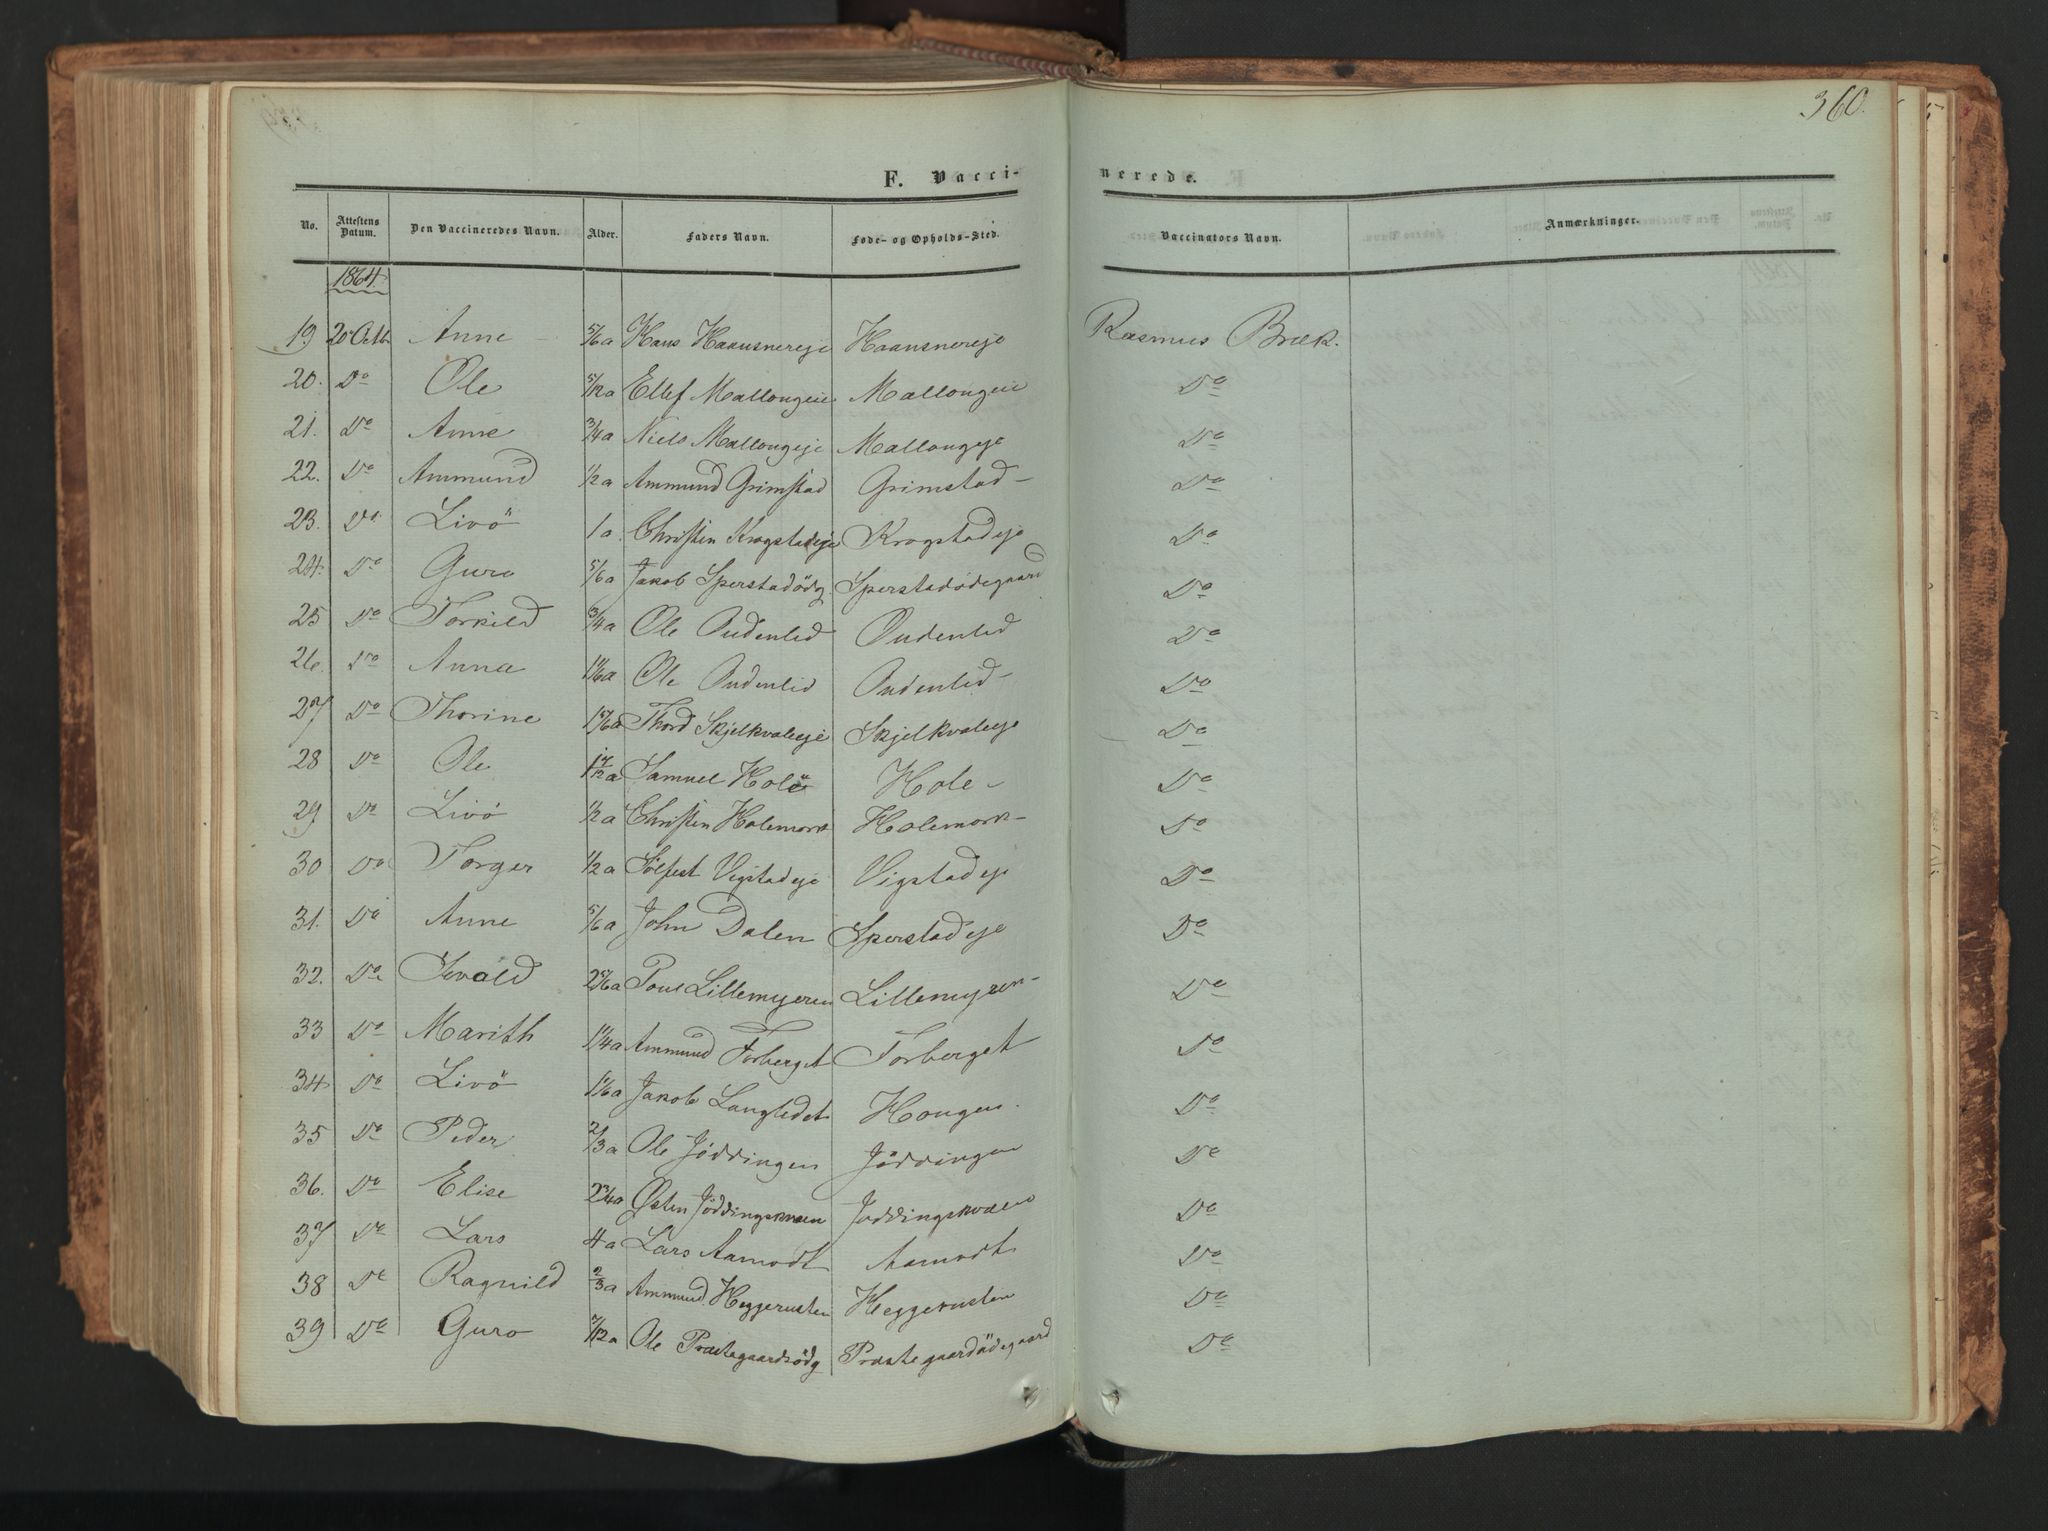 360.
F. Vaccinerede.
No. Attestens Datum. Den Vaccineredes Navn. Alder. Faders Navn. Føde- og Opholds-Sted. Vaccinators Navn. Anmærkninger.
1864.
19 20 Octb Anne 5/6 a Hans Haansnereje Haansnereje Rasmus Bræk.
20. Do Ole 5/12 a Ellef Mallongeie Mallongeie Do
21. Do Anne 3/4 a Niels Mallongeje Mallongeje Do
22. Do Ammund 1/2 a Ammund Grimstad Grimstad Do
23. Do Livö 1 a. Christen Krogstadeje Krogstadeje Do
24. Do Guro 5/6 a Jakob Sperstadödg. Sperstadödegaard Do
25 Do Torkild 3/4 a Ole Oudenlid Oudenlid Do
26. Do Anna 1 1/6 a Ole Oudenlid Oudenlid Do
27 Do Thorine 1 5/6 a Thord Skjelkvaleeje Skjelkvaleeje Do
28 Do Ole 1 7/12 a Samuel Hole Hole Do
29 Do Livö 1/2 a Christen Holemork Holemork Do
30 Do Torger 1/2 a Sølfest Vigstadeje Vigstadeje Do
31. Do Anne 5/6 a John Dalen Sperstadeje Do
32. Do Iwald 2 5/6 a Poul Lillemyeren Lillemyren Do
33 Do Marith 1 1/4 a Ammund Forberget Forberget Do
34 Do Livö 1 1/6 a Jakob Langledet Hougen. Do
35 Do Peder 2/3 a Ole Jöddingen Jöddingen Do
36. Do Elise 2 3/4 a Østen Jöddingskvæn Joddingskvæn Do
37 Do Lars 4 a Lars Aamodt Aamodt Do
38 Do Ragnild 2/3 a Ammund Heggerusten Heggerusten Do
39 Do Guro 7/12 a Ole Præstegaardsödg Præstegaardödegaard Do